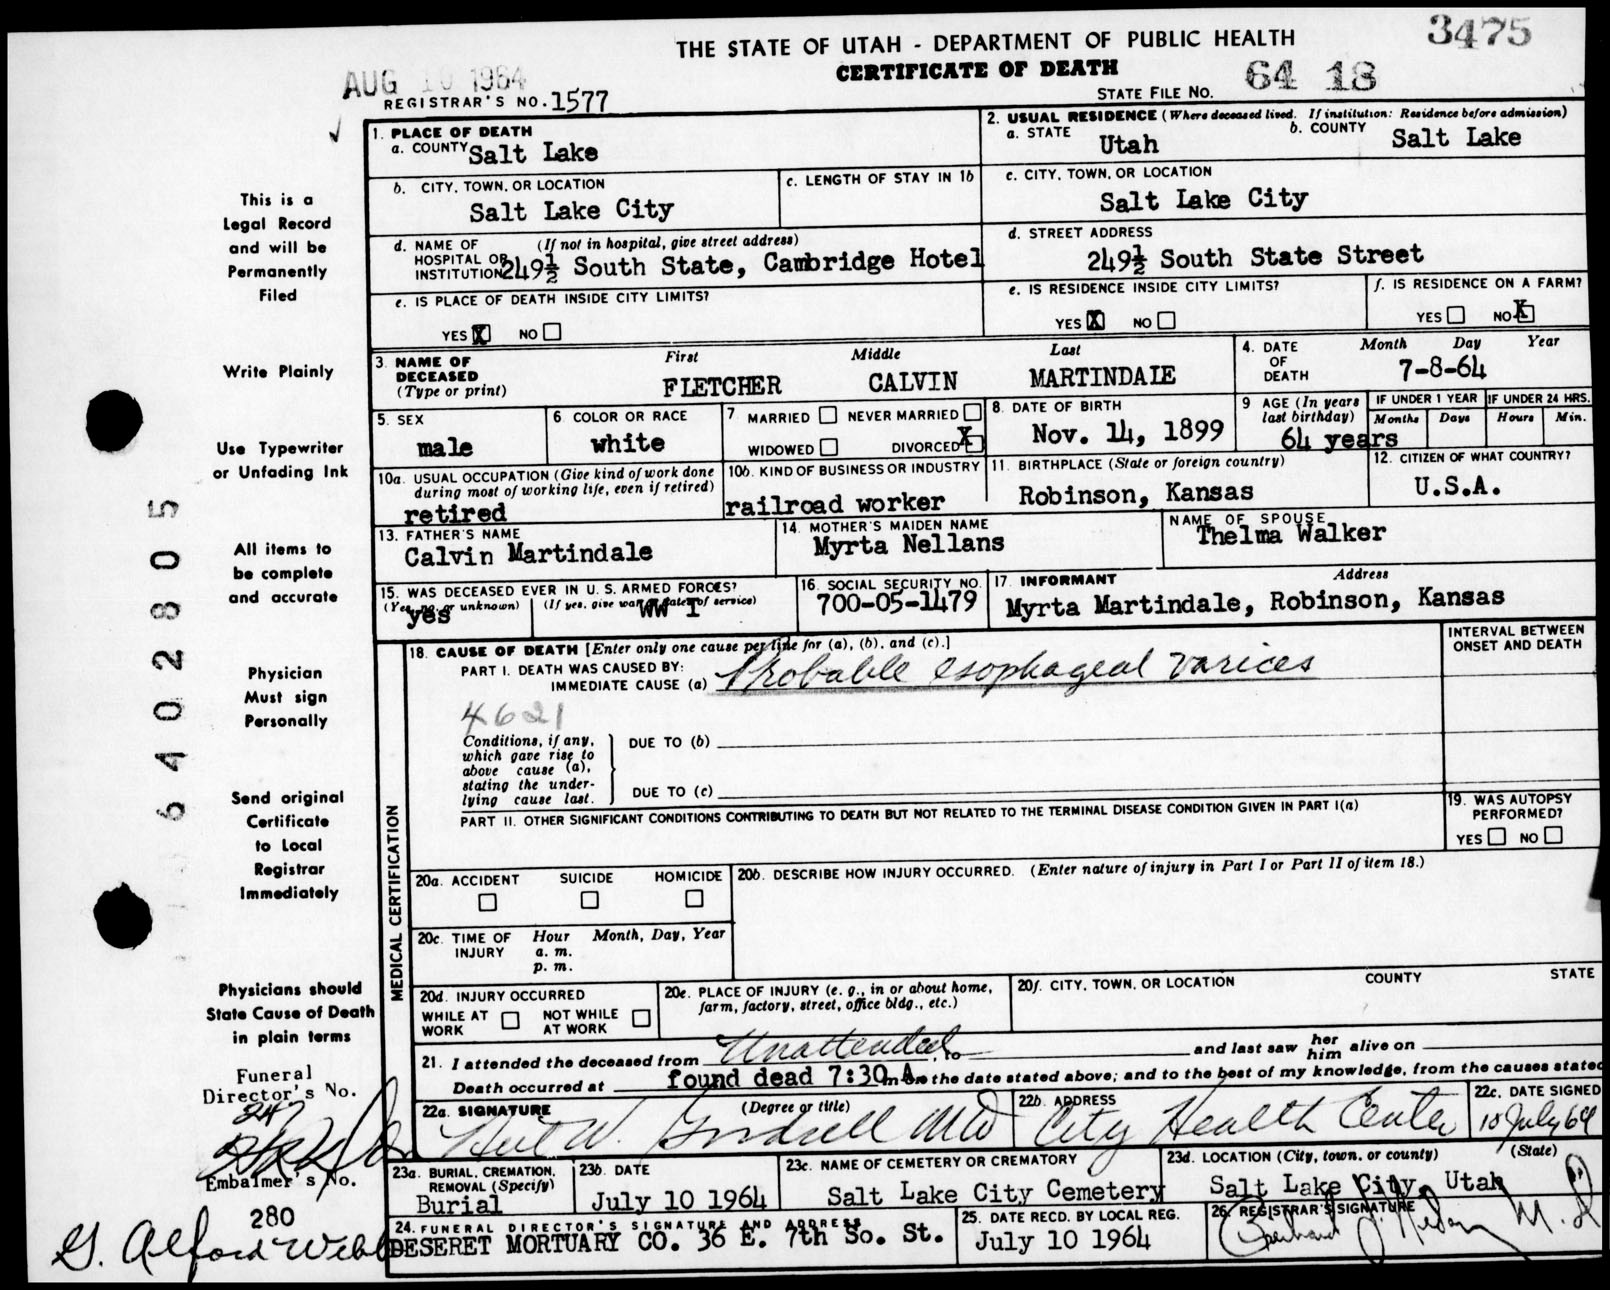 3475
THE STATE OF UTAH - DEPARTMENT OF PUBLIC HEALTH
CERTIFICATE OF DEATH
AUG 10 1964
REGISTRAR'S NO. 1577
STATE FILE NO. 64 18
1. PLACE OF DEATH
a. COUNTY Salt Lake
2. USUAL RESIDENCE (Where deceased lived. If institution: Residence before admission)
a. STATE Utah b. COUNTY Salt Lake
b. CITY, TOWN, OR LOCATION Salt Lake City
c. LENGTH OF STAY IN 1b
c. CITY, TOWN, OR LOCATION Salt Lake City
d. NAME OF HOSPITAL OR INSTITUTION (If not in hospital, give street address) 249½ South State, Cambridge Hotel
d. STREET ADDRESS 249½ South State Street
e. IS PLACE OF DEATH INSIDE CITY LIMITS? YES X NO
e. IS RESIDENCE INSIDE CITY LIMITS? YES X NO
f. IS RESIDENCE ON A FARM? YES NO X
3. NAME OF DECEASED (Type or print)
First Middle Last
FLETCHER CALVIN MARTINDALE
4. DATE OF DEATH Month Day Year
7-8-64
5. SEX male
6. COLOR OR RACE white
7. MARRIED NEVER MARRIED
WIDOWED DIVORCED X
8. DATE OF BIRTH Nov. 14, 1899
9 AGE (In years last birthday) 64 years
IF UNDER 1 YEAR Months Days
IF UNDER 24 HRS. Hours Min.
10a. USUAL OCCUPATION (Give kind of work done during most of working life, even if retired) retired
10b. KIND OF BUSINESS OR INDUSTRY railroad worker
11. BIRTHPLACE (State or foreign country) Robinson, Kansas
12. CITIZEN OF WHAT COUNTRY? U.S.A.
13. FATHER'S NAME Calvin Martindale
14. MOTHER'S MAIDEN NAME Myrta Nellans
NAME OF SPOUSE Thelma Walker
15. WAS DECEASED EVER IN U. S. ARMED FORCES?
(Yes, no, or unknown) yes (If yes, give war or dates of service) WW I
16. SOCIAL SECURITY NO. 700-05-1479
17. INFORMANT Address
Myrta Martindale, Robinson, Kansas
18. CAUSE OF DEATH [Enter only one cause per line for (a), (b), and (c).]
PART I. DEATH WAS CAUSED BY:
IMMEDIATE CAUSE (a) Probable esophageal varices
INTERVAL BETWEEN ONSET AND DEATH
4621
Conditions, if any, which gave rise to above cause (a), stating the underlying cause last.
DUE TO (b)
DUE TO (c)
PART II. OTHER SIGNIFICANT CONDITIONS CONTRIBUTING TO DEATH BUT NOT RELATED TO THE TERMINAL DISEASE CONDITION GIVEN IN PART I(a)
19. WAS AUTOPSY PERFORMED?
YES NO
MEDICAL CERTIFICATION
20a. ACCIDENT SUICIDE HOMICIDE
20b. DESCRIBE HOW INJURY OCCURRED. (Enter nature of injury in Part I or Part II of item 18.)
20c. TIME OF INJURY Hour Month, Day, Year
a. m.
p. m.
20d. INJURY OCCURRED
WHILE AT WORK NOT WHILE AT WORK
20e. PLACE OF INJURY (e. g., in or about home, farm, factory, street, office bldg., etc.)
20f. CITY, TOWN, OR LOCATION COUNTY STATE
21. I attended the deceased from Unattended, to and last saw her him alive on
Death occurred at found dead 7:30 A m on the date stated above; and to the best of my knowledge, from the causes stated
22a. SIGNATURE (Degree or title) W. MD
22b. ADDRESS City Health Center
22c. DATE SIGNED 10 July 64
23a. BURIAL, CREMATION, REMOVAL (Specify) Burial
23b. DATE July 10 1964
23c. NAME OF CEMETERY OR CREMATORY Salt Lake City Cemetery
23d. LOCATION (City, town, or county) (State) Salt Lake City, Utah
24. FUNERAL DIRECTOR'S SIGNATURE AND ADDRESS
DESERET MORTUARY CO. 36 E. 7th So. St.
25. DATE RECD. BY LOCAL REG. July 10 1964
26. REGISTRAR'S SIGNATURE M.D.
This is a
Legal Record
and will be
Permanently
Filed
Write Plainly
Use Typewriter
or Unfading Ink
All items to
be complete
and accurate
Physician
Must sign
Personally
Send original
Certificate
to Local
Registrar
Immediately
Physicians should
State Cause of Death
in plain terms
Funeral
Director's No.
24
Embalmer's No.
280
G. Alford Webb
6 4 0 2 8 0 5